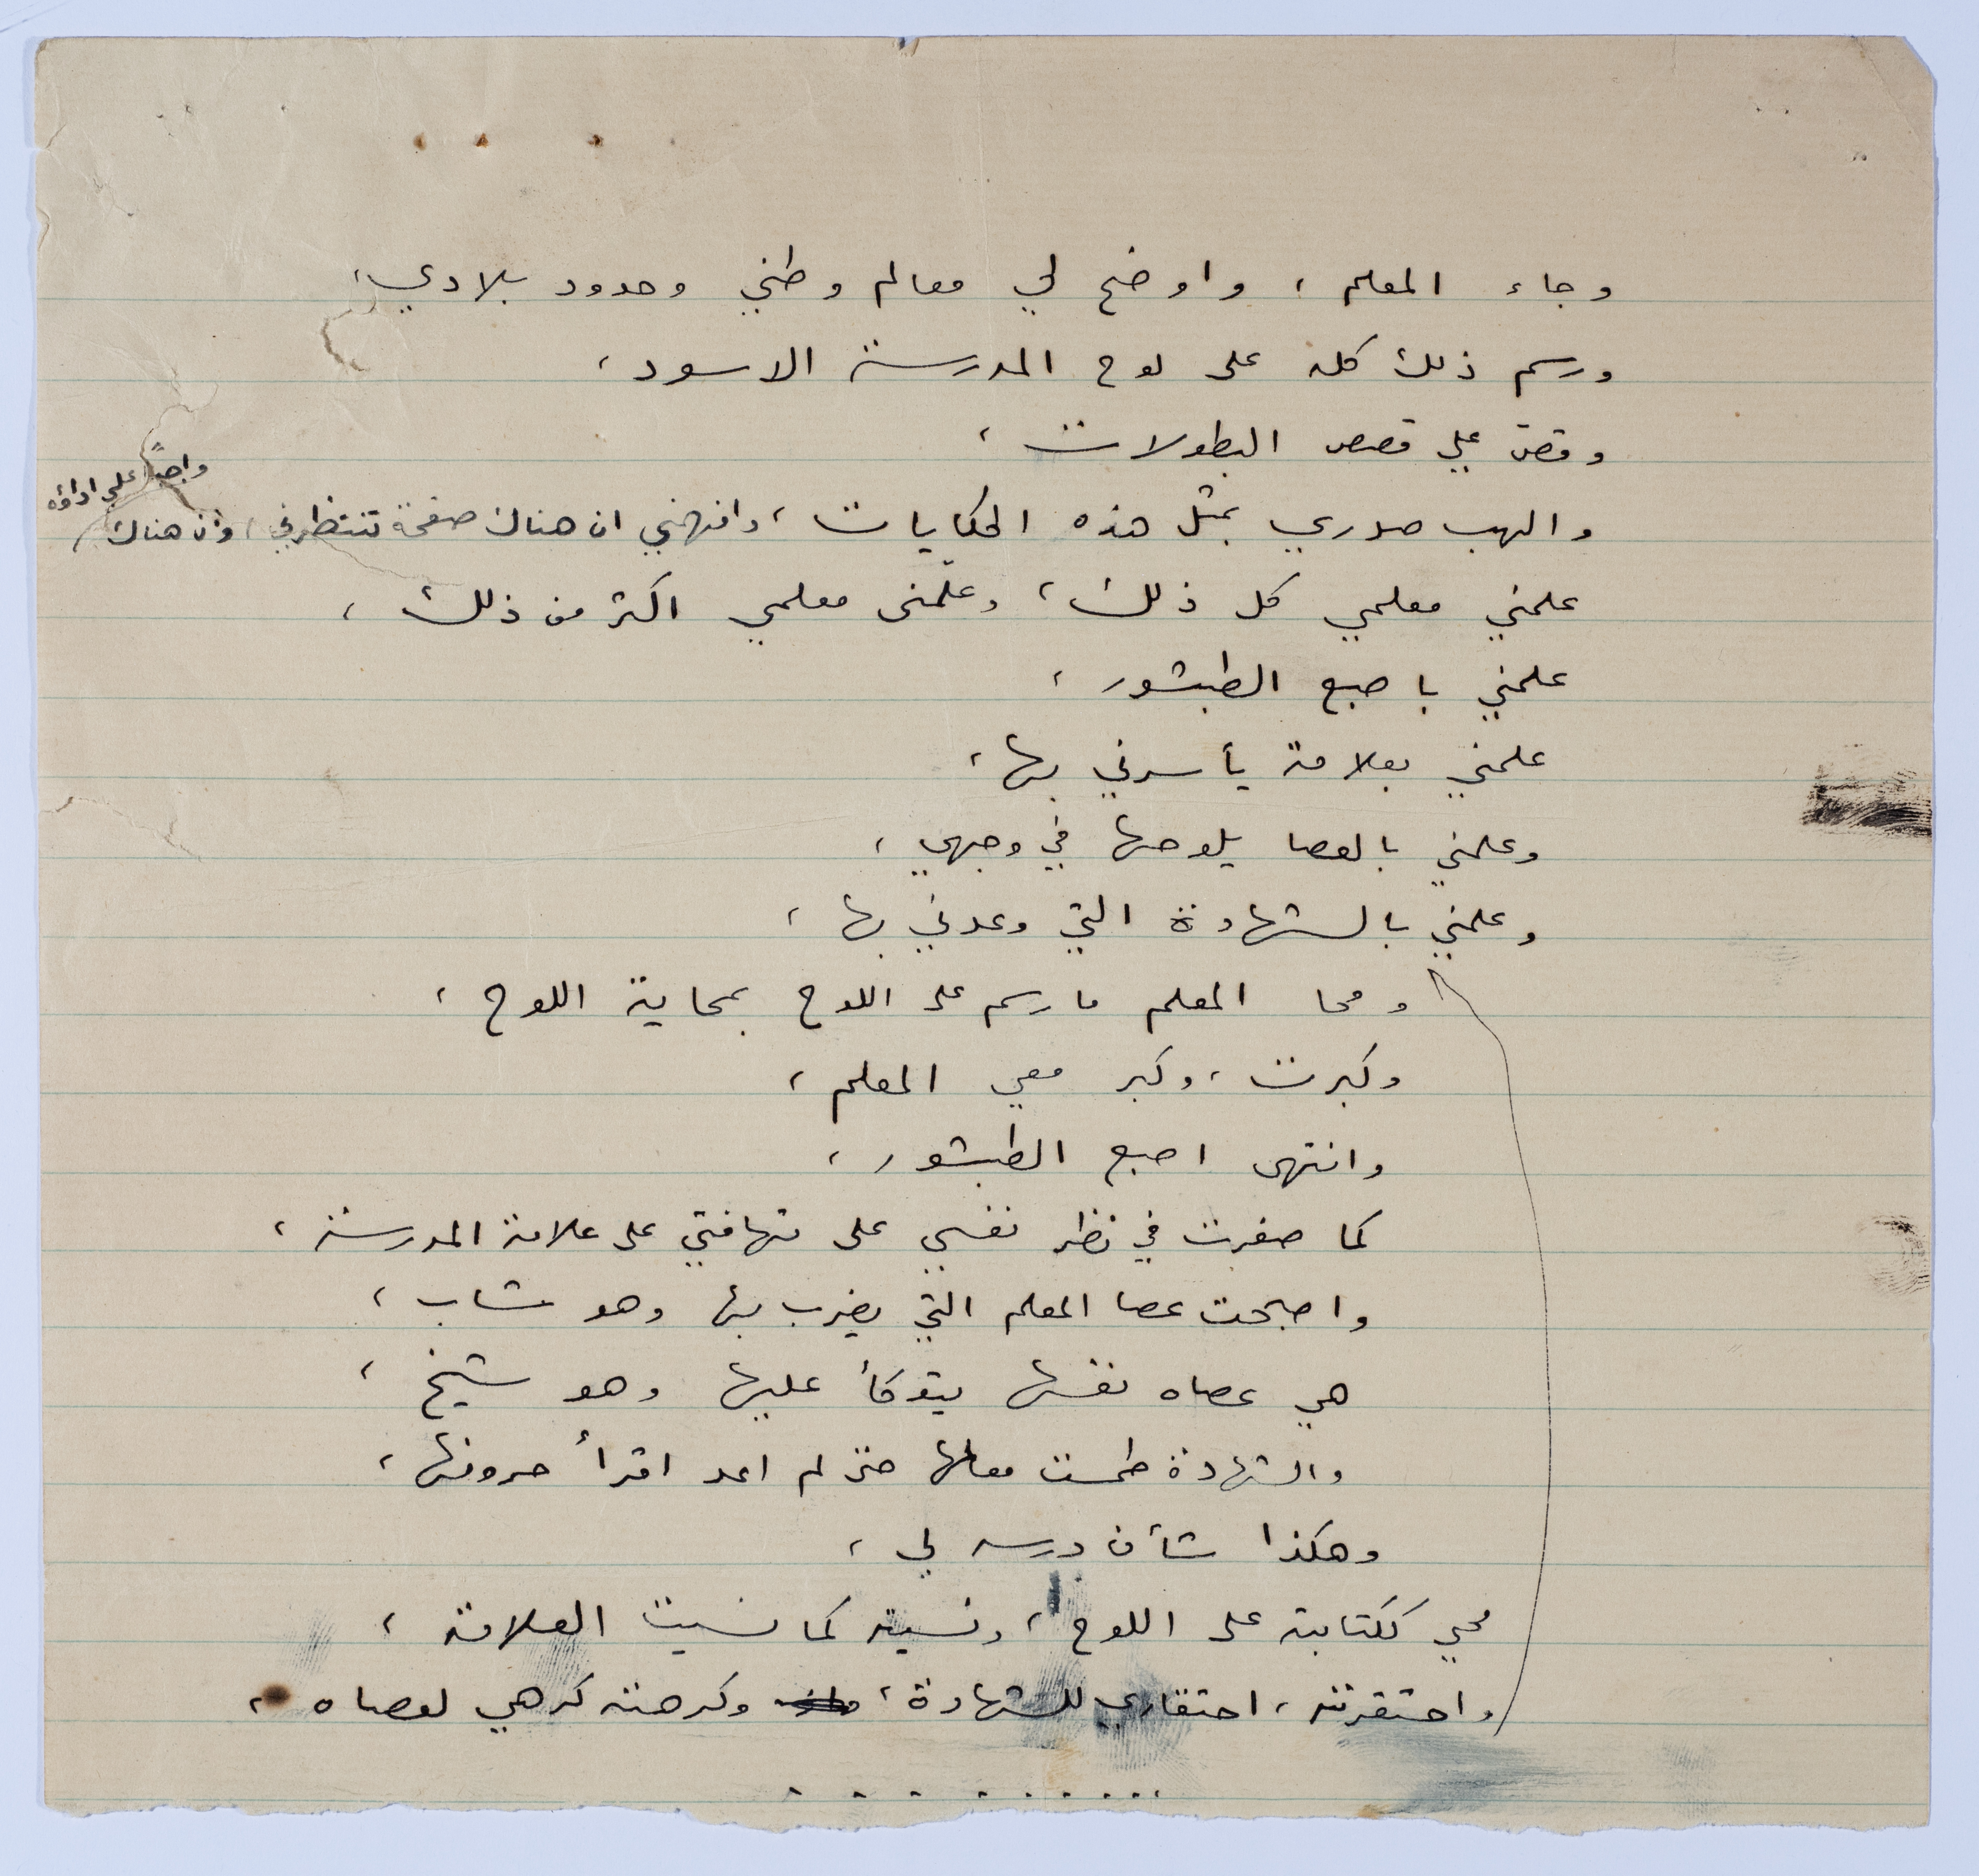 وجاء المعلم، واوضح لي معالم وطني وحدود بلادي،
ورسم ذلك كله على لوح المدرسة الاسود،
وقصّ علي قصص البطولات،
والهب صدري بمثل هذه الحكايات، وافهمني ان هناك صفحة تنتظرني، وان هناك
واجباً علي اداؤه
علمني معلمي كل ذلك، وعلّمني معلمي اكثر من ذلك،
علمني باصبع الطبشور،
علمني بعلامة يأسرني بها،
وعلمني بالعصا يلوحها في وجهي،
وعلمني بالشهادة التي وعدني بها،
ومحا المعلم ما رسم على اللوح بمحاية اللوح،
وكبرت، وكبر معي المعلم،
وانتهى اصبع الطبشور،
كما صغرت في نظر نفسي على تهافتي على علامة المدرسة،
واصبحت عصا المعلم التي يضرب بها وهو شاب،
هي عصاه نفسها يتوكأ عليها وهو شيخ،
والشهادة طمست معالمها حتى لم اعد اقرأ حروفها،
وهكذا شأن درسه لي،
محي ككتابته على اللوح، ونسيته كما نسيت العلامة،
واحتقرته، احتقاري للشهادة، وكرهته كرهي لعصاه،
. . . . . . . . . .